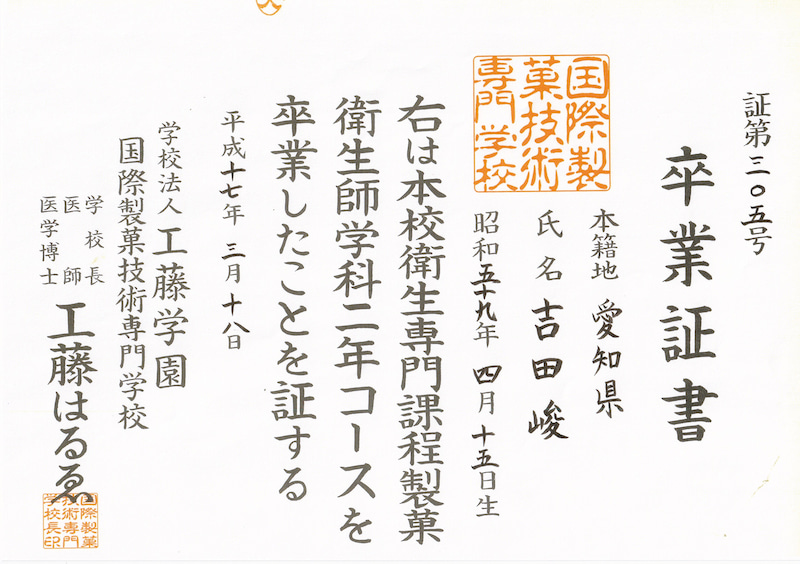 証第三〇五号
卒業証書
国際製
菓技術
専門学校
本籍地 愛知県
氏名 吉田峻
昭和五十九年 四月 十五日生
右は本校衛生専門課程製菓
衛生師学科二年コースを
卒業したことを証する
平成十七年 三月 十八日
学校法人 工藤学園
国際製菓技術専門学校
学校長
医師
医学博士
工藤はるゑ
国際製菓
技術専門
学校長印